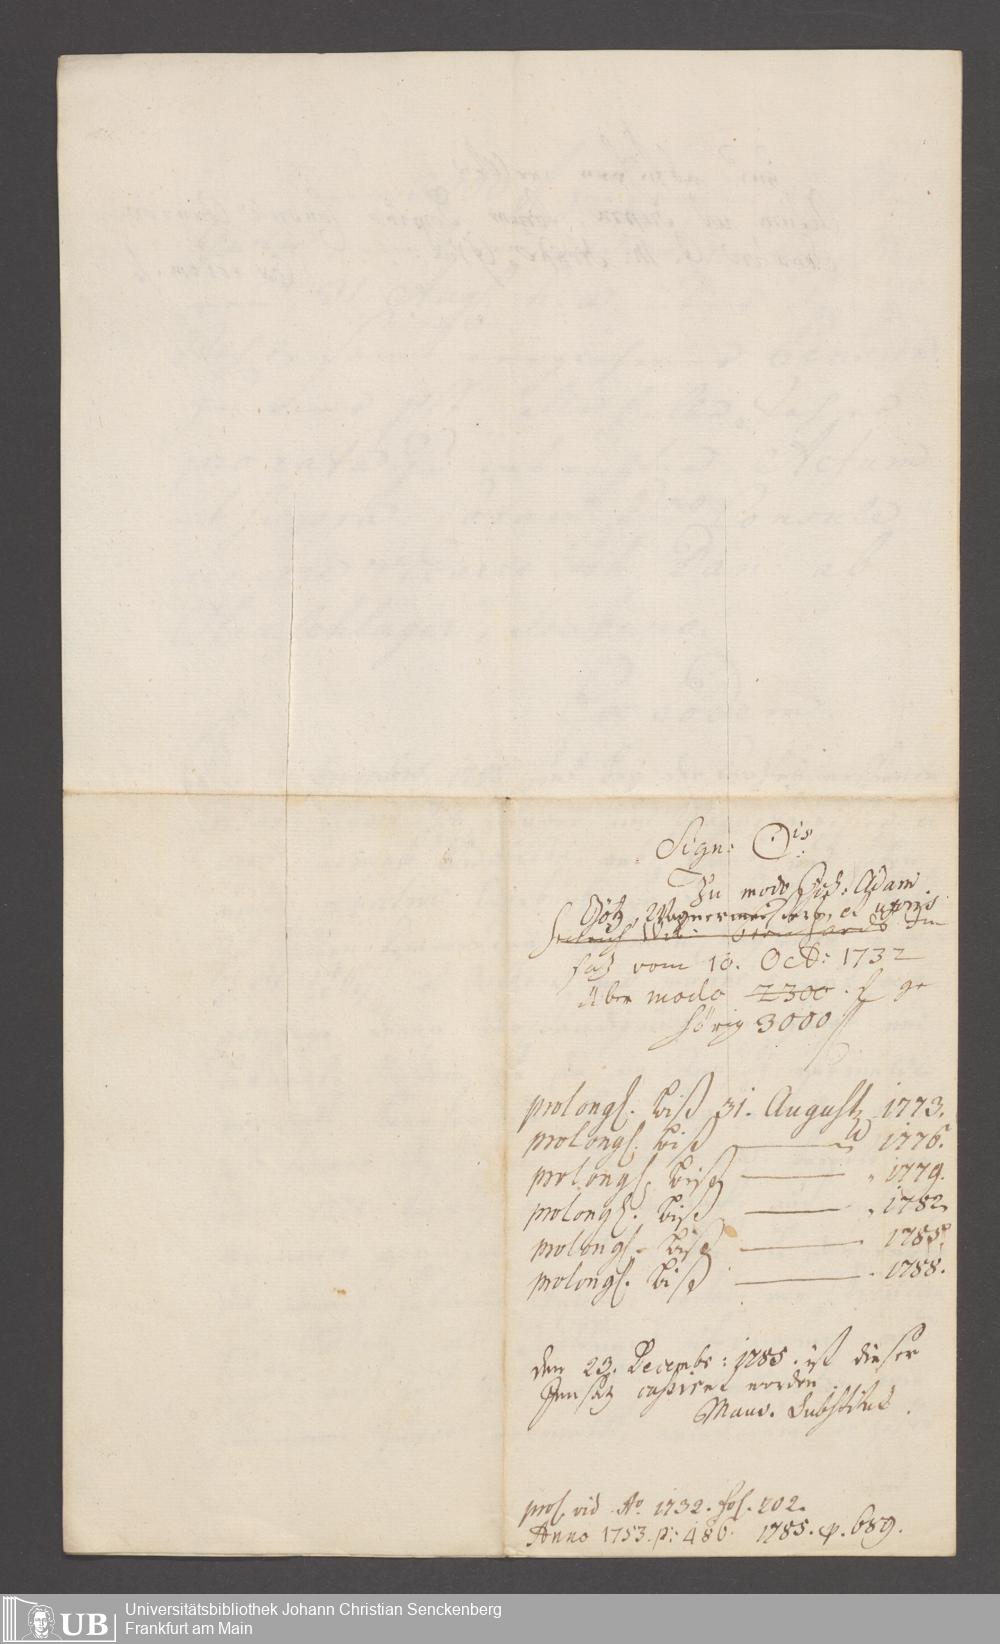 Sign: Q is:
Zu modo Joh: Adam
Götz, Wagnermeisters, et uxoris
Inn
satz vom 10. Oct: 1732
über modo 2300. f ge
hörig 3000 f
prolongt. biß 31. August 1773.
prolongt. biß 1776.
prolongt. biß 1779.
prolongt. biß 1782.
prolongt. biß 1785.
prolongt. biß 1788.
den 23. Decembr: 1785. ist dieser
Innsatz cassiret worden
Substitut.
prot. vid. Ao. 1732. fol. 202.
Anno 1753. p: 486. 1785. p. 689.
UB Universitätsbibliothek Johann Christian Senckenberg
Frankfurt am Main